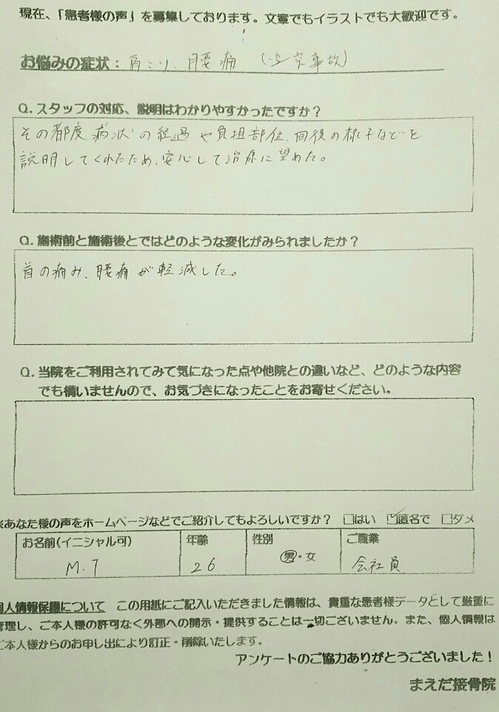 現在、「患者様の声」を募集しております。文章でもイラストでも大歓迎です。
お悩みの症状：肩こり、腰痛 (交通事故)
Q.スタッフの対応、説明はわかりやすかったですか？
その都度 病状の経過や負担部位、回復の様子などを
説明してくれたため、安心して治療に望めた。
Q.施術前と施術後とではどのような変化がみられましたか？
首の痛み、腰痛が軽減した。
Q.当院をご利用されてみて気になった点や他院との違いなど、どのような内容
でも構いませんので、お気づきになったことをお寄せください。
※あなた様の声をホームページなどでご紹介してもよろしいですか？ □はい ☑匿名で □ダメ
お名前(イニシャル可) 年齢 性別 ご職業
M.T 26 男・女 会社員
個人情報保護について この用紙にご記入いただきました情報は、貴重な患者様データとして厳重に
管理し、ご本人様の許可なく外部への開示・提供することは一切ございません。また、個人情報は
ご本人様からのお申し出により訂正・削除いたします。
アンケートのご協力ありがとうございました！
まえだ接骨院